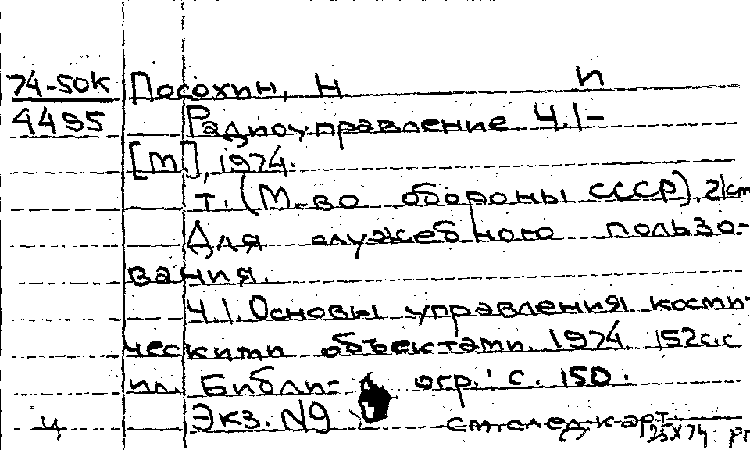 74-50к Посохин, Н И
4495 Радиоуправление Ч.1-
[М], 1974.
т. (М-во обороны СССР). 21см
Для служебного пользо-
вания.
Ч.1. Основы управления косми-
ческими объектами. 1974. 152с.с
ил. Библи- огр.: с. 150.
Экз. N9
ч см.след.карт.
25 X 74 рг